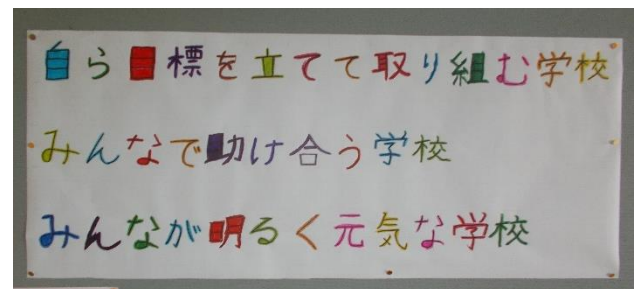 自ら目標を立てて取り組む学校
みんなで助け合う学校
みんなが明るく元気な学校